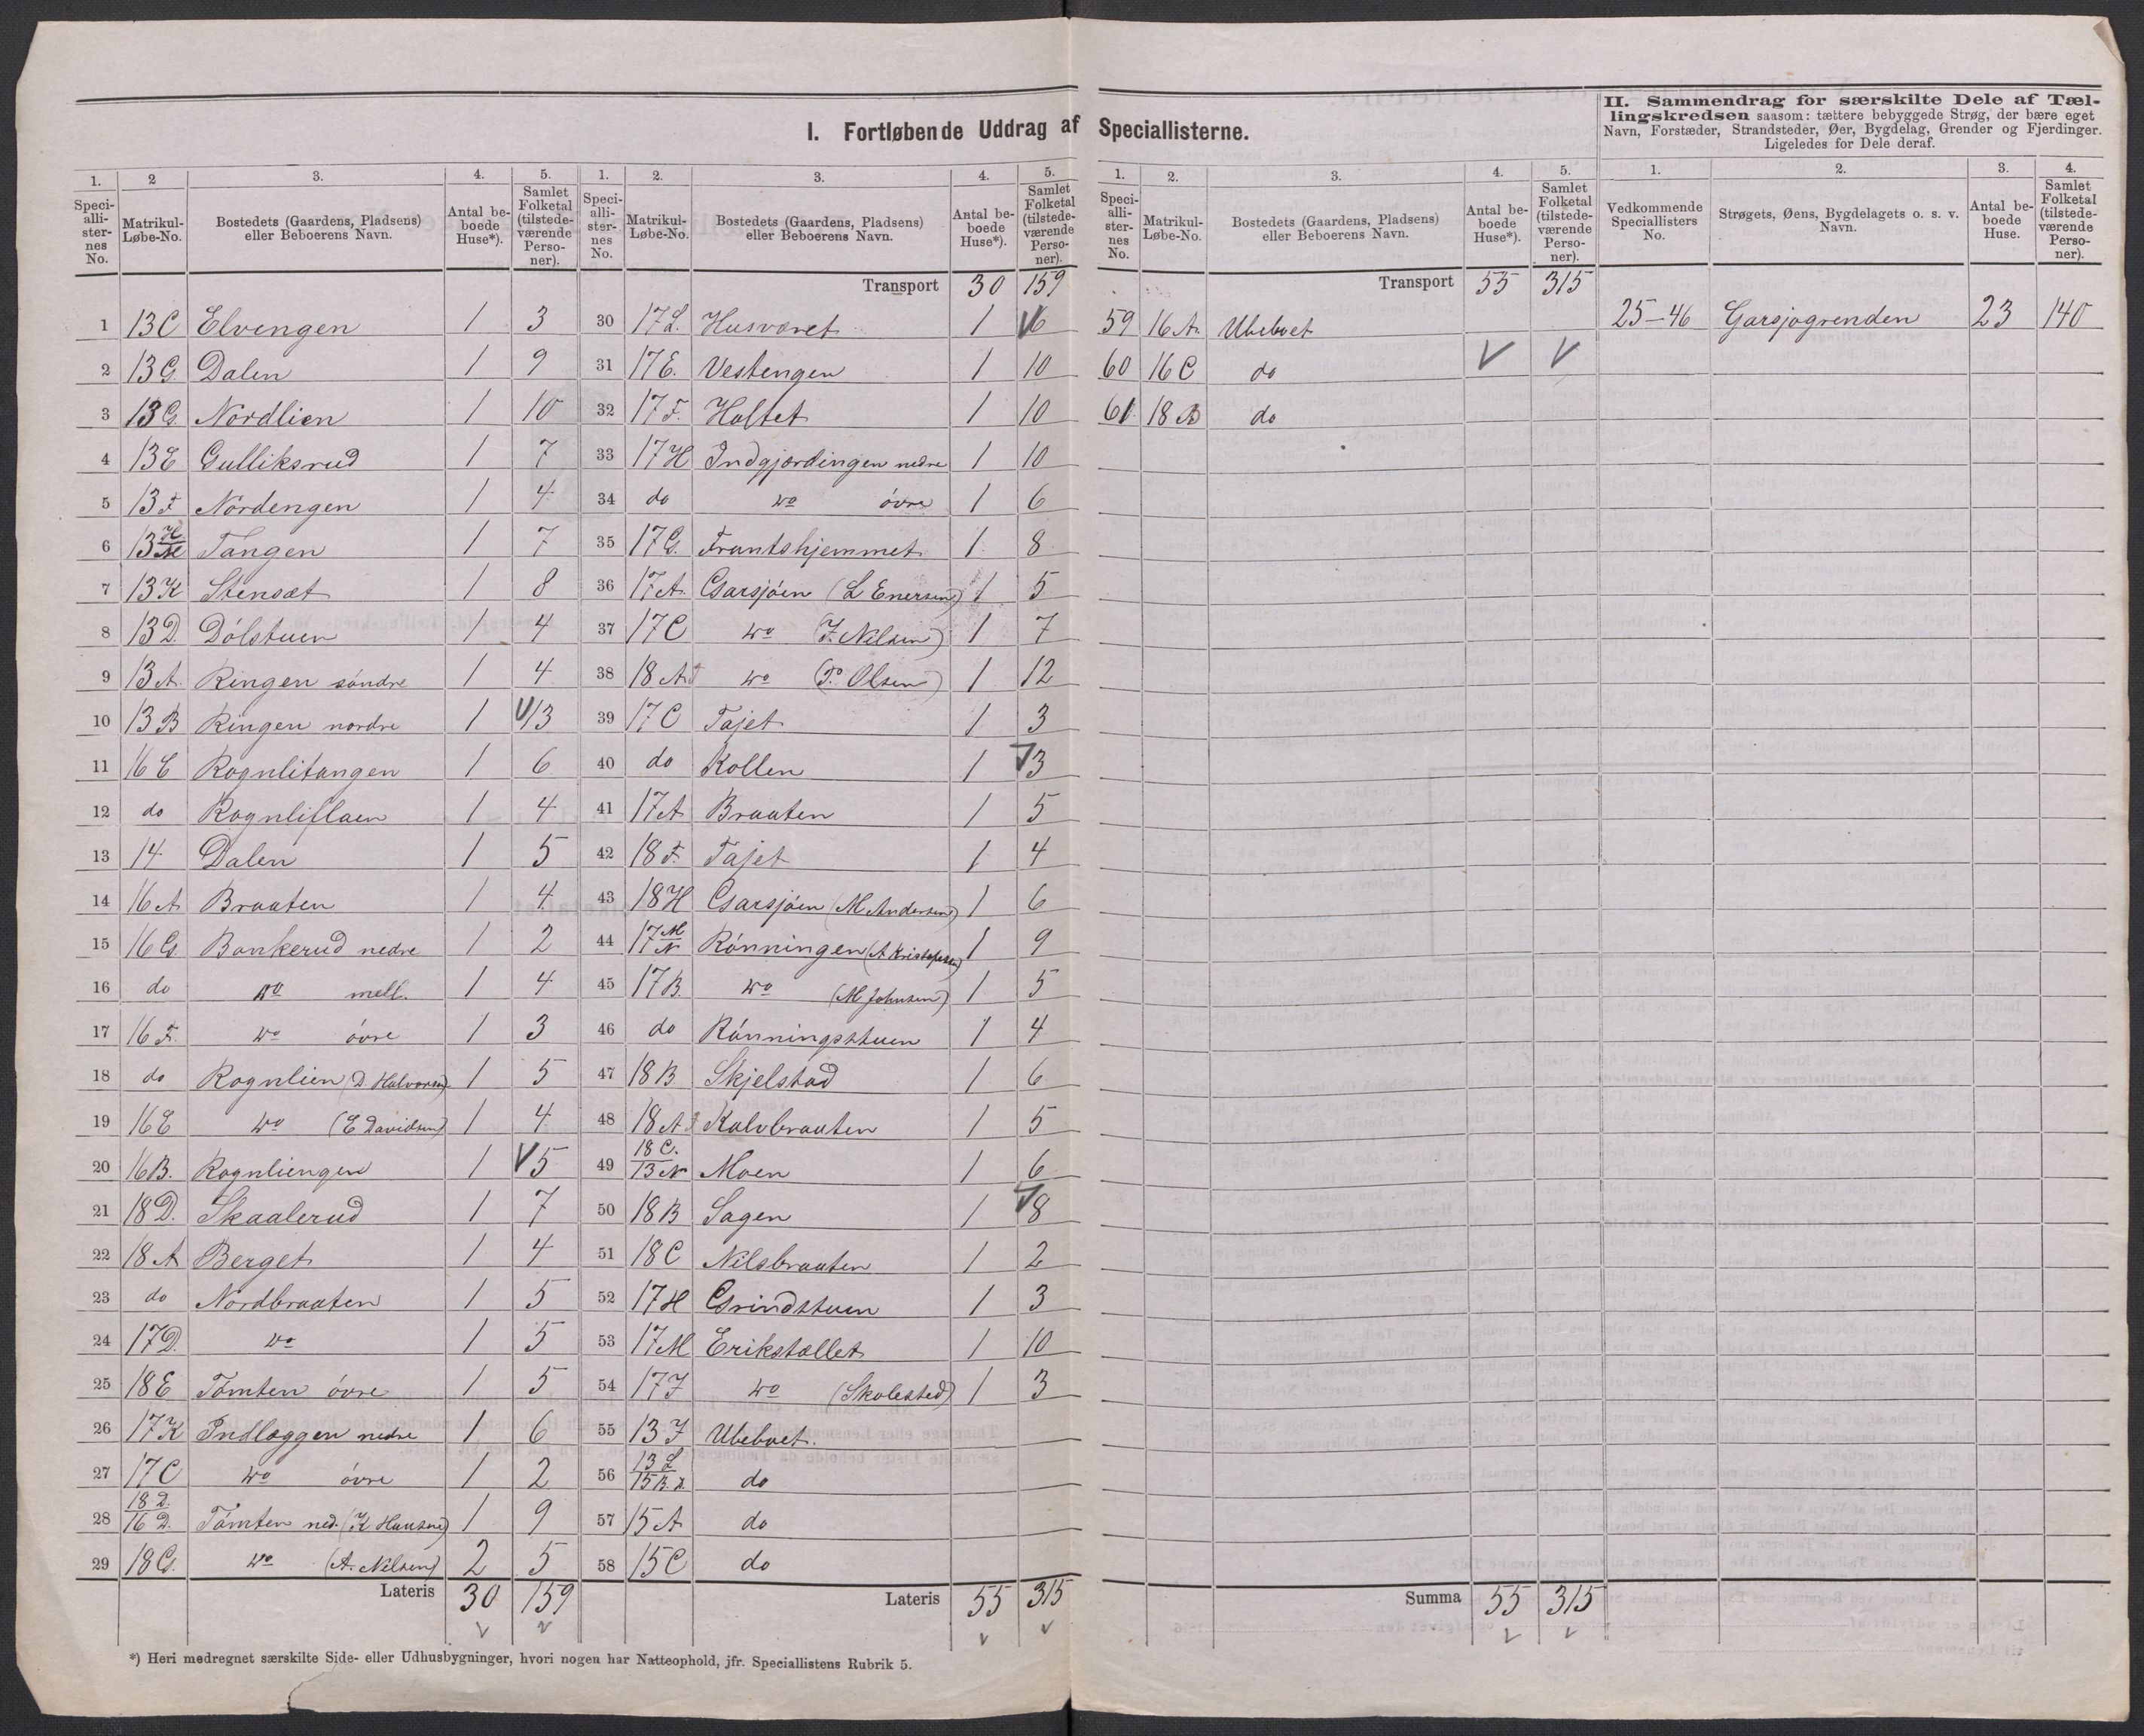 I. Fortløbende Uddrag af Speciallisterne.
II. Sammendrag for særskilte Dele af Tællingskredsen saasom: tættere bebyggede Strøg, der bære eget Navn, Forstæder, Strandsteder, Øer, Bygdelag, Grender og Fjerdinger. Ligeledes for Dele deraf.
1. 2 3. 4. 5.
Speciallisternes No. Matrikul-Løbe-No. Bostedets (Gaardens, Pladsens) eller Beboerens Navn. Antal beboede Huse*). Samlet Folketal (tilstedeværende Personer).
1 13C Elvengen 1 3
2 13G. Dalen 1 9
3 13G. Nordlien 1 10
4 13E Gulliksrud 1 7
5 13F Nordengen 1 4
6 13 H/M Tangen 1 7
7 13K Stensæt 1 8
8 13D. Dólstuen 1 4
9 13A. Ringen söndre 1 4
10 13B Ringen nordre 1 13
11 16E Rognlitangen 1 6
12 do Rognliflaen 1 4
13 14 Dalen 1 5
14 16A Braaten 1 4
15 16G. Bonkerud nedre 1 2
16 do do mell. 1 4
17 16F. do óvre 1 3
18 do Rognlien (D. Halvorsen) 1 5
19 16E do (E Davidsen) 1 4
20 16B. Rognliengen 1 5
21 18D. Skaalerud 1 7
22 18A Berget 1 4
23 do Nordbraaten 1 5
24 17D. do 1 5
25 18E Tómten óvre 1 5
26 17K Indlæggen nedre 1 6
27 17C do óvre 1 2
28 18D./16D. Tómten ned. (K Hansen) 1 9
29 18G. do (A. Nilsen) 2 5
Lateris 30 159
1. 2. 3. 4. 5.
Speciallisternes No. Matrikul-Løbe-No. Bostedets (Gaardens, Pladsens) eller Beboerens Navn. Antal beboede Huse*). Samlet Folketal (tilstedeværende Personer).
Transport 30 159
30 17L. Husværet 1 6
31 17E. Vestengen 1 10
32 17F. Holtet 1 10
33 17H Indgjærdingen nedre 1 10
34 do do óvre 1 6
35 17G. Frantshjemmet 1 8
36 17A. Garsjóen (L Enersen) 1 5
37 17C do (J. Nilsen) 1 7
38 18A. do (P. Olsen) 1 12
39 17C Tajet 1 3
40 do Kollen 1 3
41 17A Braaten 1 5
42 18F. Tajet 1 4
43 18H Garsjóen (M Andersen) 1 6
44 17 M/N Rónningen (A Kristofersen) 1 9
45 17B. do (M Johnsen) 1 5
46 do Rónningsstuen 1 4
47 18B Skjelstad 1 6
48 18A Kalvbraaten 1 5
49 18C./13N Moen 1 6
50 18B Sagen 1 8
51 18C Nilsbraaten 1 2
52 17H Grindstuen 1 3
53 17M Erikstollet 1 10
54 17J do (Skolested) 1 3
55 13J Ubeboet.
56 13L/15B.D. do
57 15A do
58 15C do
Lateris 55 315
1. 2. 3. 4. 5.
Speciallisternes No. Matrikul-Løbe-No. Bostedets (Gaardens, Pladsens) eller Beboerens Navn. Antal beboede Huse*). Samlet Folketal (tilstedeværende Personer).
Transport 55 315
59 16A. Ubeboet
60 16C do
61 18B do
Summa 55 315
1. 2. 3. 4.
Vedkommende Speciallisters No. Strøgets, Øens, Bygdelagets o. s. v. Navn. Antal beboede Huse. Samlet Folketal (tilstedeværende Personer).
25-46 Garsjøgrenden 23 140
*) Heri medregnet særskilte Side- eller Udhusbygninger, hvori nogen har Natteophold, jfr. Speciallistens Rubrik 5.